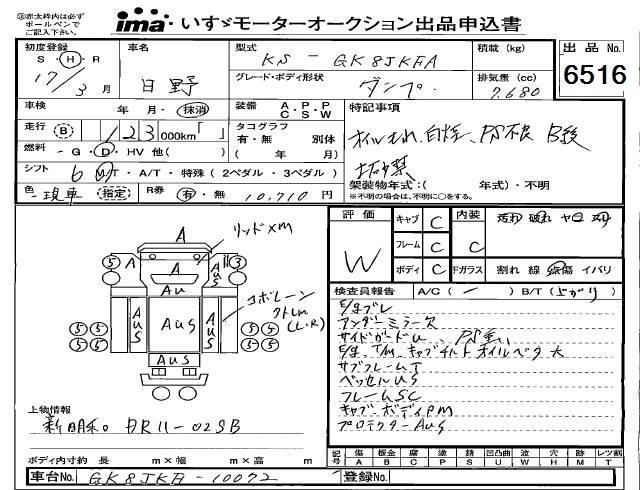 ※赤太枠内は必ず ボールペンで ご記入下さい。
ima いすゞモーターオークション出品申込書
初度登録 車名 型式 積載(kg) 出品No.
S・H・R 17/3月 日野 KS-GK8JKFA 6516
グレード・ボディ形状 ダンプ 排気量(cc) 7,680
車検 年・月・抹消 装備 A・P・P C S W 特記事項
走行 B 123 000km「 」 タコグラフ 有・無 別体
オイルもれ、白煙、PS不良
燃料 -G・D・HV 他( )
土砂禁
シフト 6 MT・A/T・特殊(2ペダル・3ペダル) 架装物年式:( 年式)・不明
色 現車 指定 R券 有・無 10,710円 ※不明の場合は、不明に○をする。
評価 W キャブ C 内装 C 汚れ 破れ ヤロ
フレーム C
ボディ C Fガラス 割れ 線 飛傷 イバリ
A リッドXM
検査員報告 A/C(ー) B/T(上がり)
コボレーン
AUS AUS AUS
アンダーミラー欠
サイドガードU
サブフレームT
ベッセルUS
フレームSC
キャブ・ボディPM
プロテクターAUS
上物情報
新明和 DR11-02SB
ボディ内寸約 長 m×幅 m×高 m
記号 傷 A 板金 B 腐 C 塗 P 錆 S 凹凸曲 U 波 W 穴 H 跡 M レツ割 T
車台No. GK8JKA-10072 登録No.